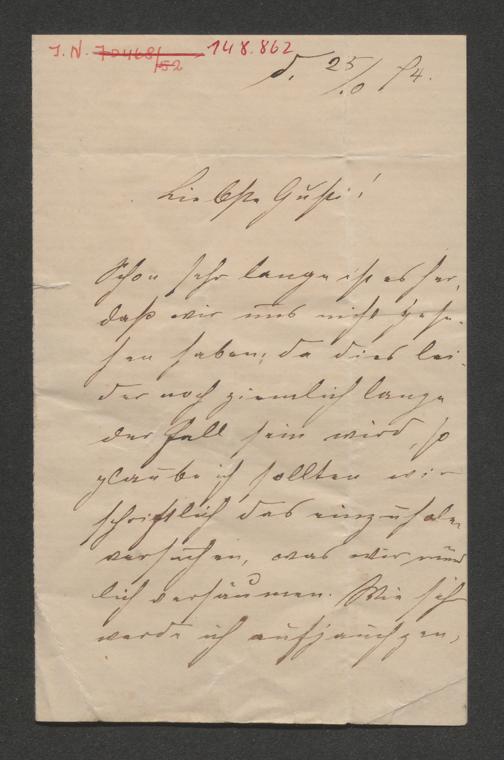 J. N. 70468/52 148.862
d. 25/10 74.
Liebste Gusti!
Schon sehr lange ist es her,
daß wir uns nicht gese-
hen haben; da dies lei-
der noch ziemlich lange
der Fall sein wird, so
glaube ich sollten wir
schriftlich das einzuholen
versuchen, was wir münd
lich versäumen. Wie sehr
werde ich aufjauchzen,